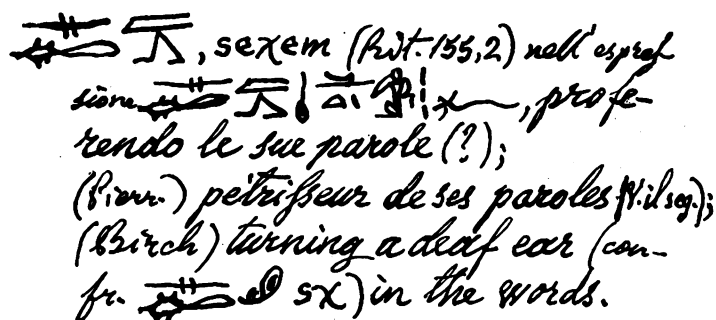 , seχem (Rit. 155, 2) nell'espres
sione , profe-
rendo le sue parole (?);
(Pierr.) pétrisseur de ses paroles (V. il seg.);
(Birch) turning a deaf ear (con-
fr. sχ) in the words.